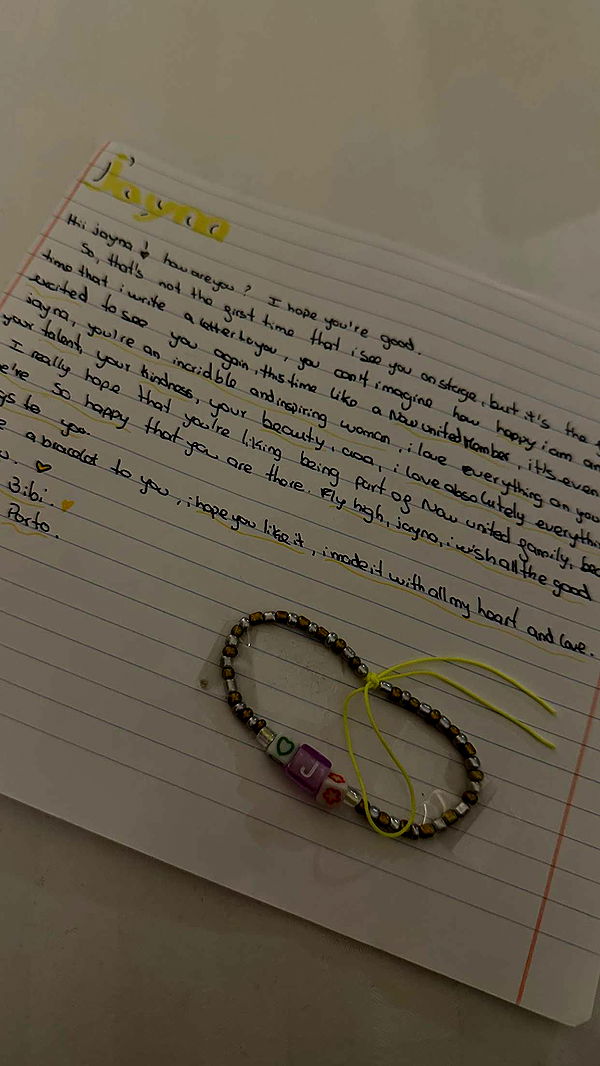 jayna
Hii jayna! how are you? I hope you're good.
So, that's not the first time that i see you on stage, but it's the
time that i write a letter to you, you can't imagine how happy i am an
excited to see you again, this time like a Now united Member, it's even
jayna, you're an incridble and inspiring woman, i love everything on you
your talent, your kindness, your beauty, aaa, i love absolutely everythi
I really hope that you're liking being part of Now united family, bec
e're so happy that you are there. Fly high, jayna, i wish all the good
gs to you.
e a bracelet to you, i hope you like it, i made it with all my heart and love.
Bibi.
Porto.
J